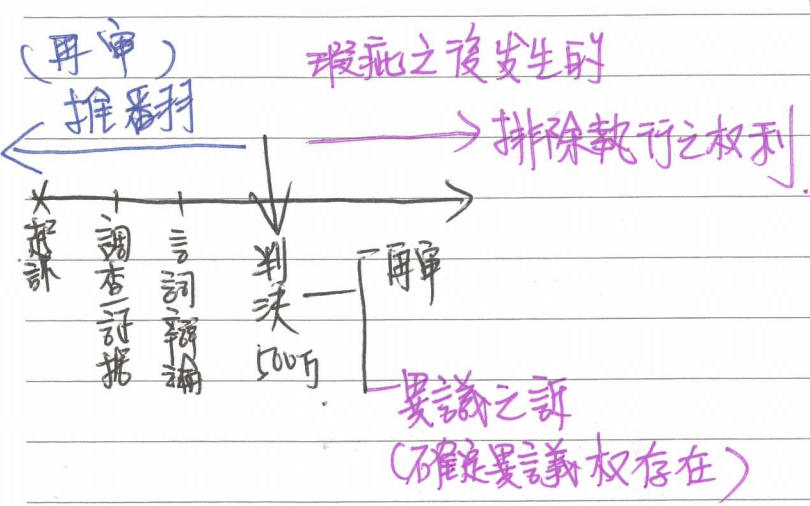 (再审)
推翻
瑕疵之後发生的
排除執行之权利.
起訴
調查証据
言詞辯論
判決
500万.
再审
異議之訴
(確定異議权存在)